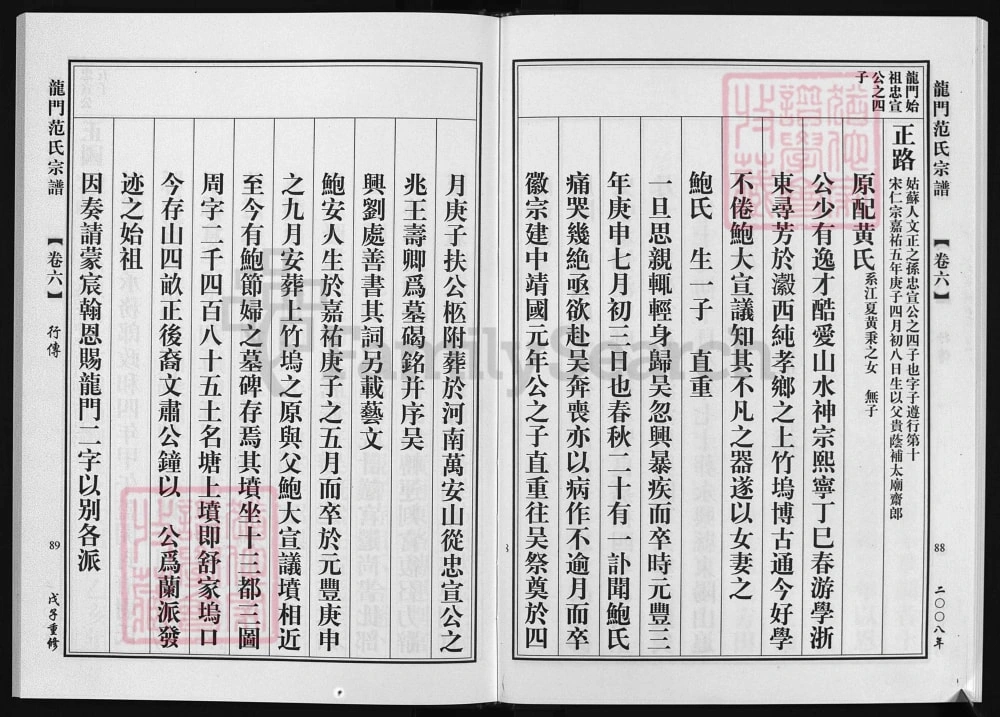 龍門范氏宗譜
【卷六】
行傳
88
二〇〇八年
龍門始
祖忠宣
公之四
子
正路
姑蘇人文正之孫忠宣公之四子也字子遵行第十
宋仁宗嘉祐五年庚子四月初八日生以父貴蔭補太廟齋郎
原配黄氏
系江夏黃秉之女 無子
公少有逸才酷愛山水神宗熙寧丁巳春游學浙
東尋芳於瀫西純孝鄉之上竹塢博古通今好學
不倦鮑大宣議知其不凡之器遂以女妻之
鮑氏 生一子 直重
一旦思親輒輕身歸吴忽興暴疾而卒時元豐三
年庚申七月初三日也春秋二十有一訃聞鮑氏
痛哭幾絶亟欲赴吴奔喪亦以病作不逾月而卒
徽宗建中靖國元年公之子直重往吴祭奠於四
月庚子扶公柩附葬於河南萬安山從忠宣公之
兆王壽卿爲墓碣銘并序吴
興劉處善書其詞另載藝文
鮑安人生於嘉祐庚子之五月而卒於元豐庚申
之九月安葬上竹塢之原與父鮑大宣議墳相近
至今有鮑節婦之墓碑存焉其墳坐十三都三圖
周字二千四百八十五土名塘上墳即舒家塢口
今存山四畝正後裔文肅公鐘以 公爲蘭派發
迹之始祖
因奏請蒙宸翰恩賜龍門二字以别各派
龍門范氏宗譜
【卷六】
行傳
89
戊子重修
FamilySearch